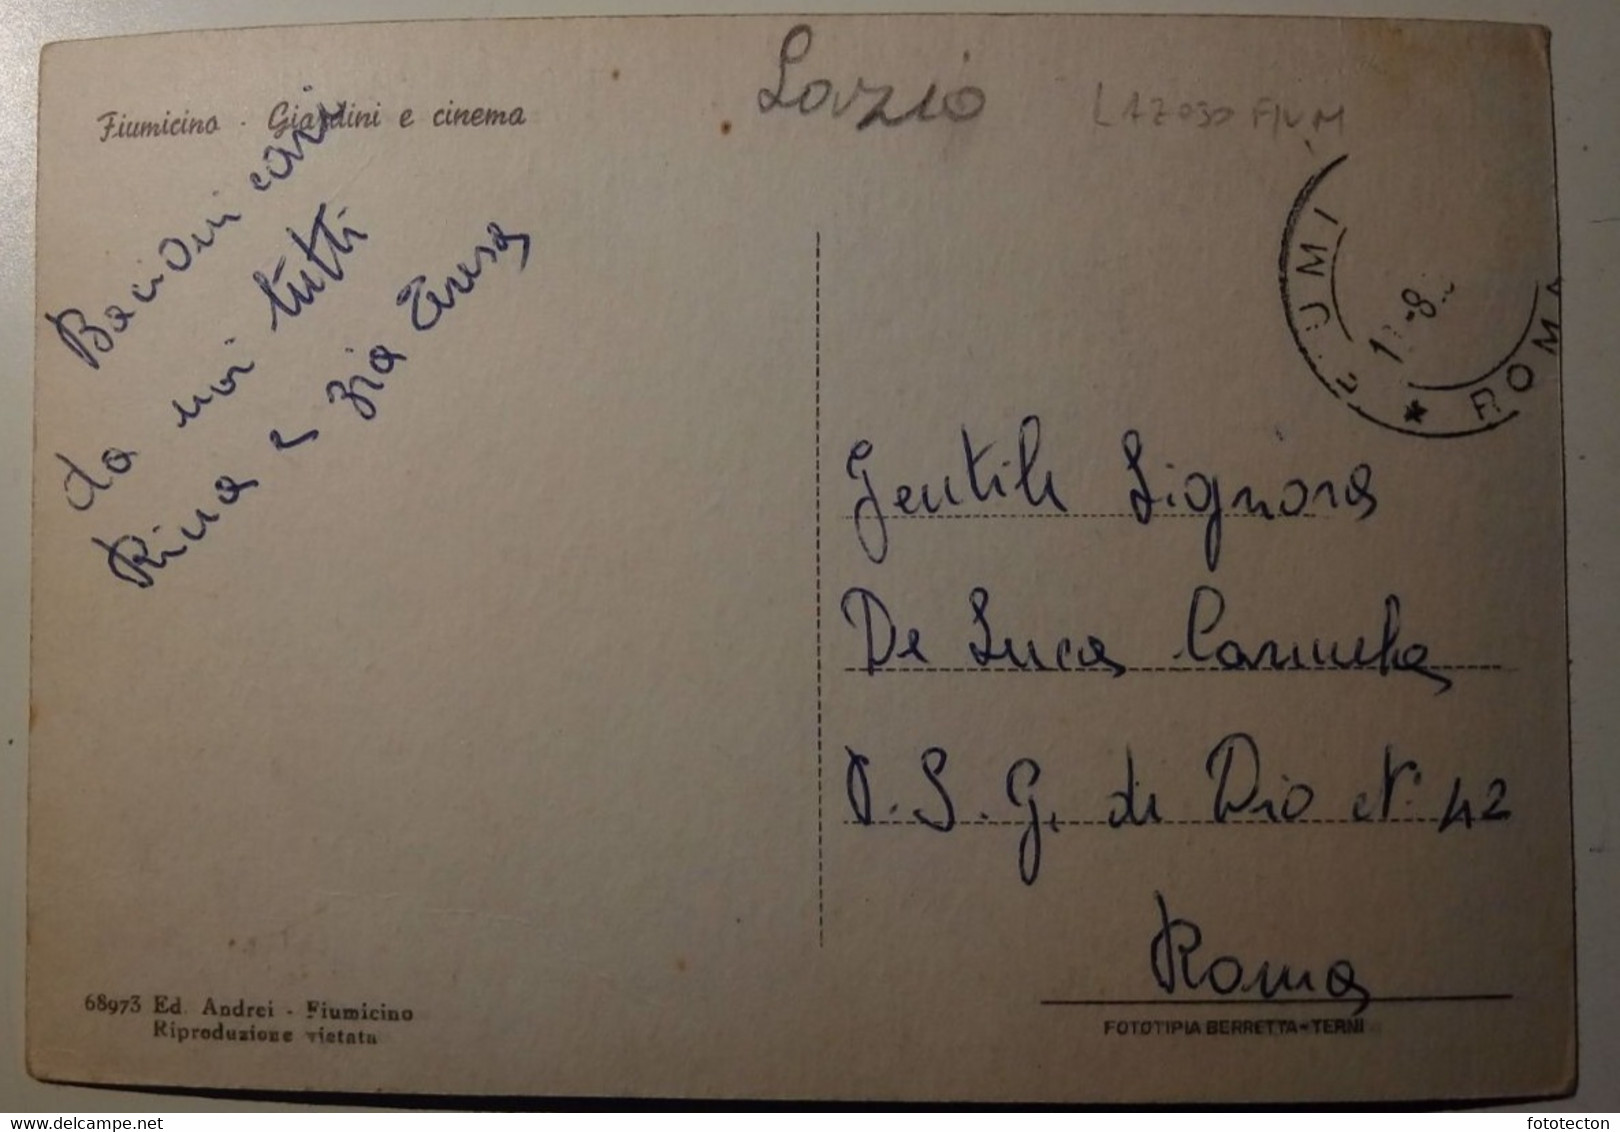 Fiumicino - Giardini e cinema
Lazio
LAZ030 FIUM
Bacioni cari
da noi tutti
Rina e zia Teresa
FIUMI
ROMA
Gentile Signora
De Luca Carmela
V. S. G. di Dio N. 42
Roma
68973 Ed. Andrei - Fiumicino
Riproduzione vietata
FOTOTIPIA BERRETTA-TERNI
delcampe.net
fototecton